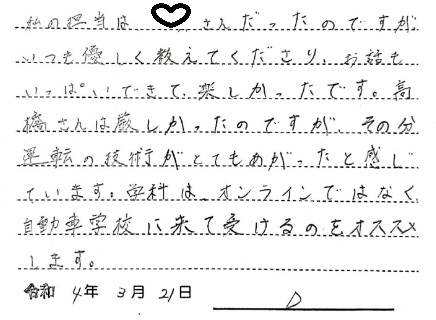 私の担当は さんだったのですが
いつも優しく教えてくださり、お話も
いっぱいできて、楽しかったです。高
橋さんは厳しかったのですが、その分
運転の技術がとてもあがったと感じ
ています。学科は、オンラインではなく、
自動車学校に来て受けるのをオススメ
します。
令和 4年 3月 21日
D